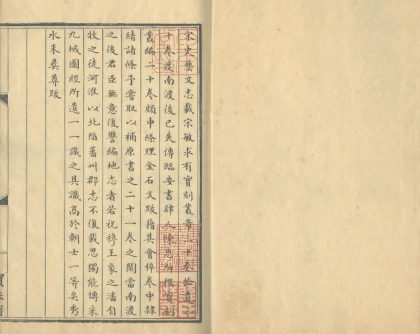 宋史藝文志載宋敏求有寶刻叢章三十卷拾遺三
十卷度南渡後已失傳臨安書肆人陳思所撰寶刻
叢編二十卷頗申條理金石文跋藉其會稡卷中隸
緒諸條予嘗取以補原書之二十一卷之闕當南渡
之後君臣無意復讐編地志者若祝穆王象之潘自
牧之徒河淮以北陷蕃州郡志不復載思獨能博采
九域圖經所遺一一識之其識高於朝士一等矣秀
水朱彝尊跋